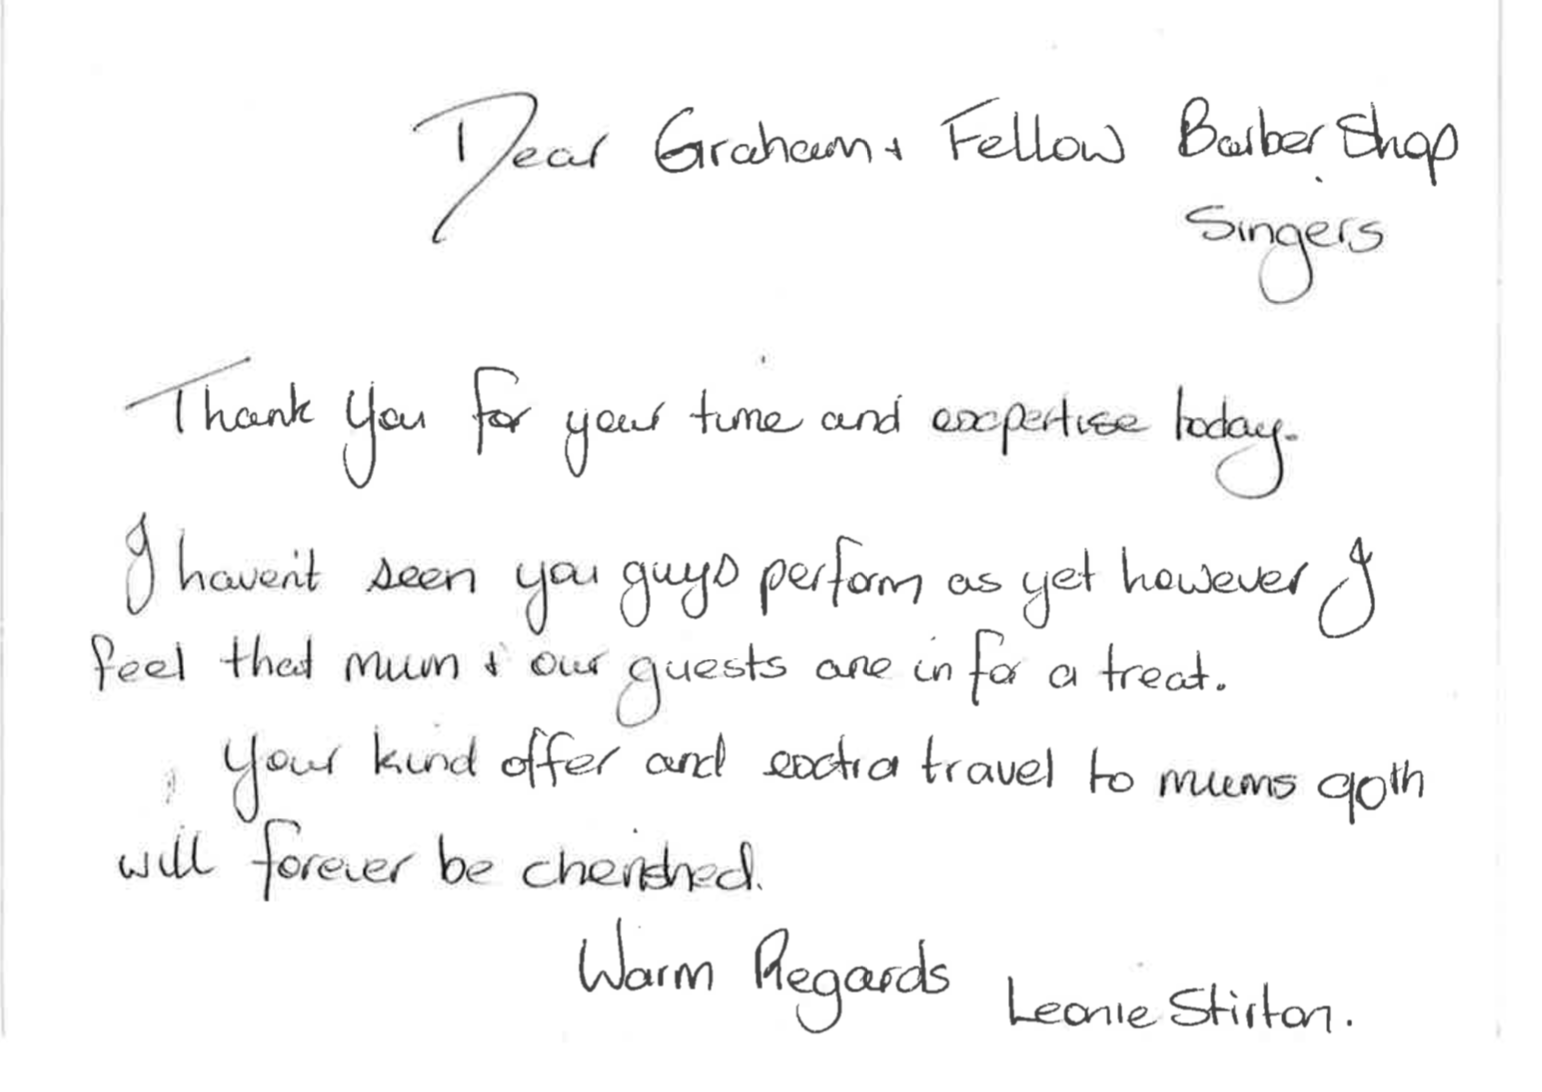 Dear Graham + Fellow Barber Shop
Singers
Thank you for your time and expertise today.
I haven't seen you guys perform as yet however I
feel that mum + our guests are in for a treat.
Your kind offer and extra travel to mums 90th
will forever be cherished.
Warm Regards
Leonie Stirton.